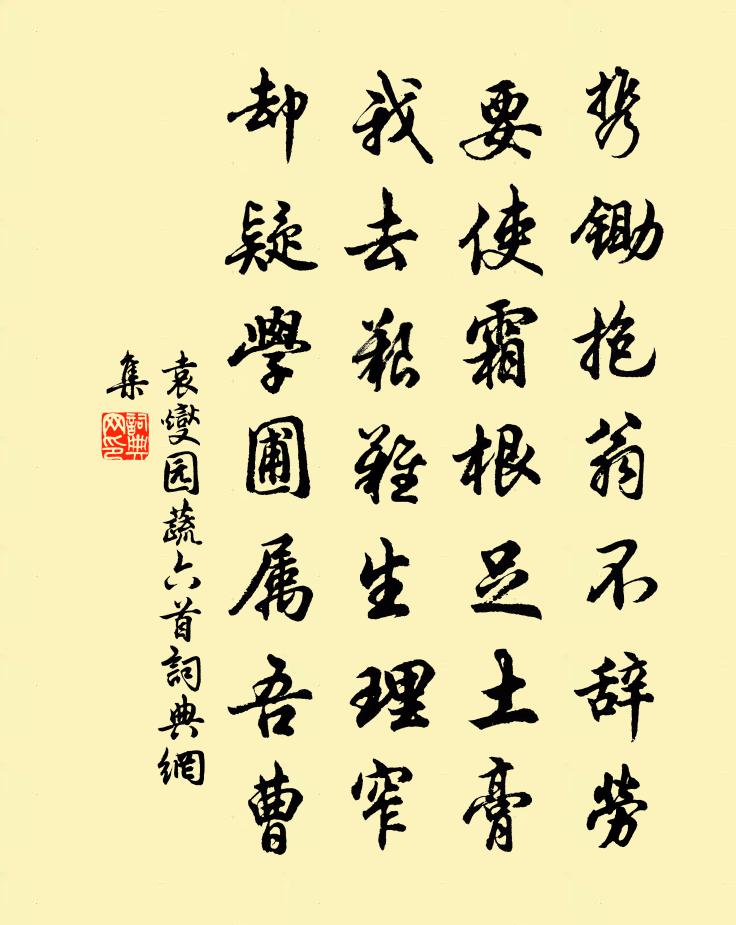 携鋤抱瓮不辞勞
要使霜根足土膏
我去艱難生理窄
却疑學圃属吾曹
袁燮园蔬六首詞典網
集
詞典網印